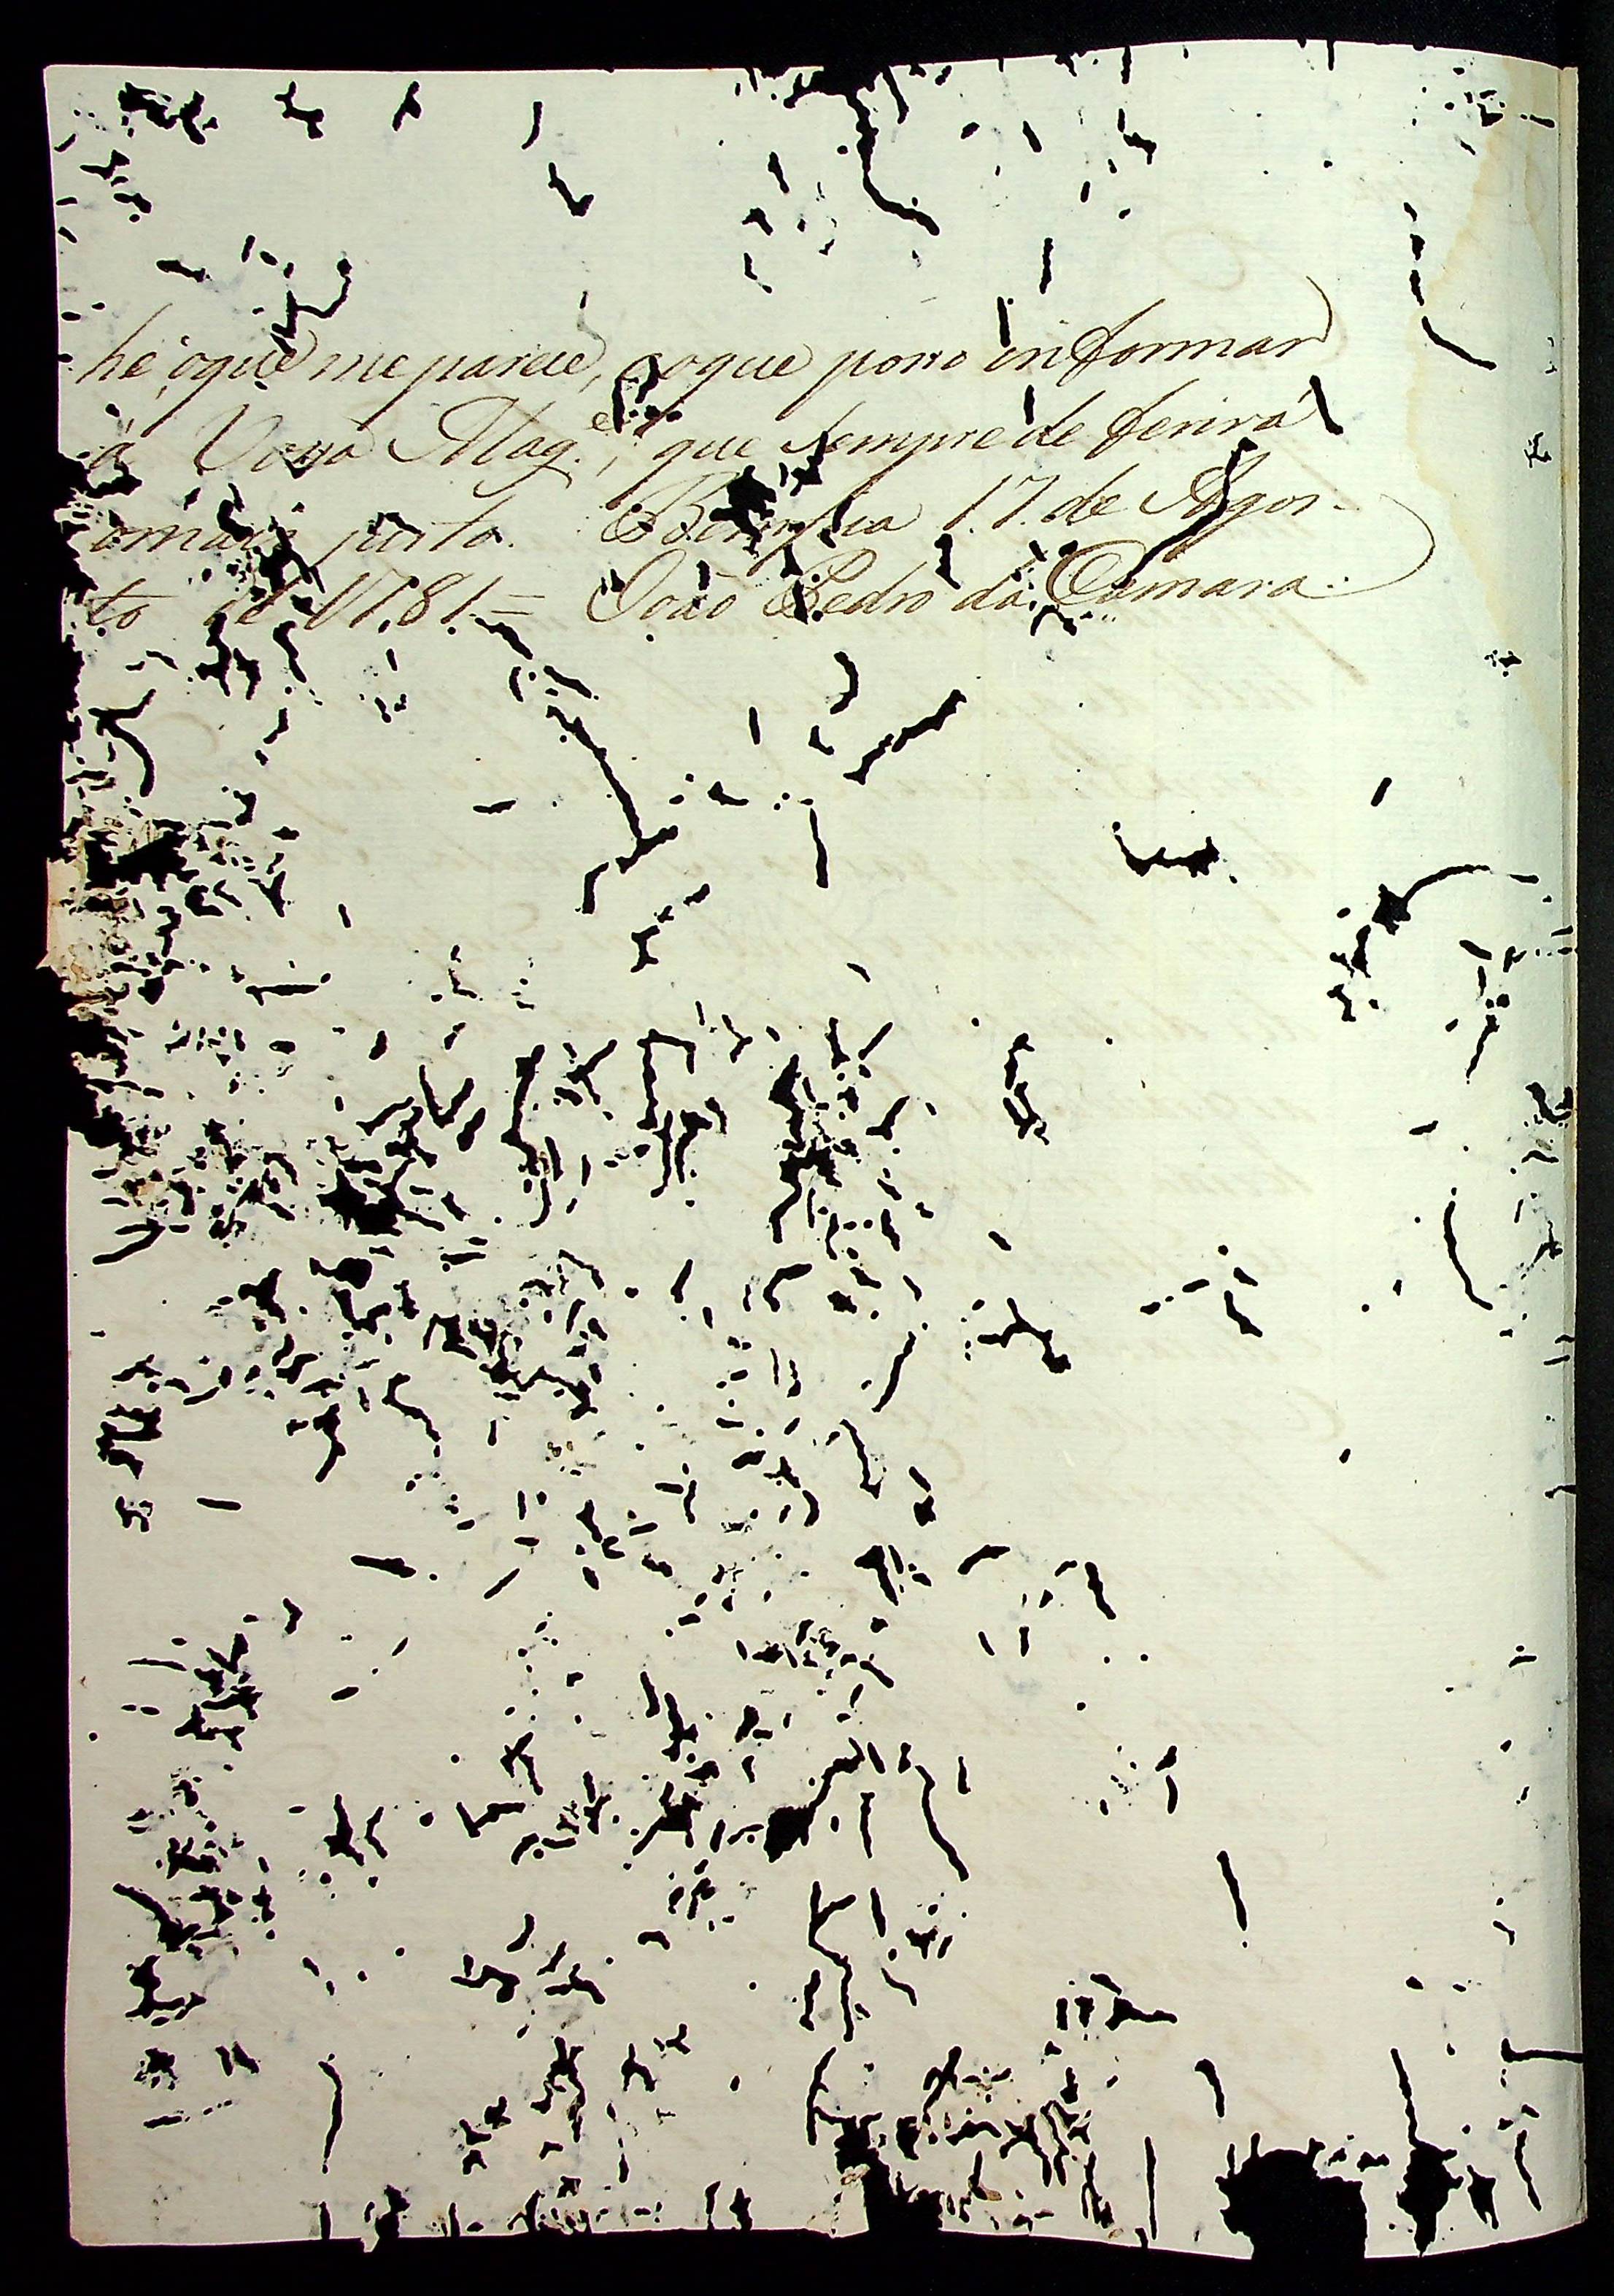 he, oque me parece, eoque posso informar
á Vossa Mag.e, que sempre de ferirá
omais justo. 17. de Agos-
to de 1781.= João Pedro da Camara.